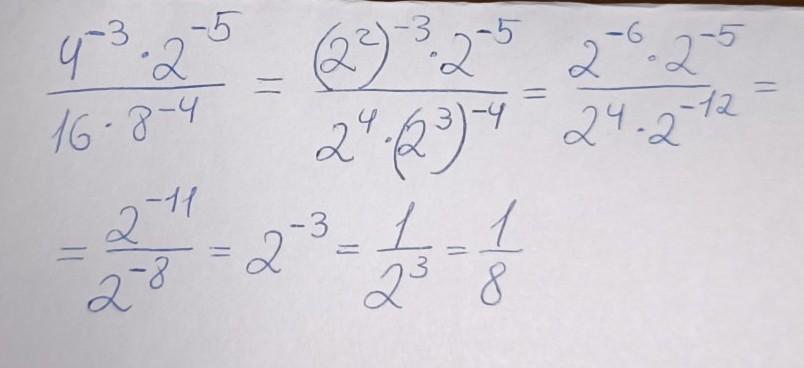 \frac{4^{-3} \cdot 2^{-5}}{16 \cdot 8^{-4}} = \frac{(2^2)^{-3} \cdot 2^{-5}}{2^4 \cdot (2^3)^{-4}} = \frac{2^{-6} \cdot 2^{-5}}{2^4 \cdot 2^{-12}} =
= \frac{2^{-11}}{2^{-8}} = 2^{-3} = \frac{1}{2^3} = \frac{1}{8}